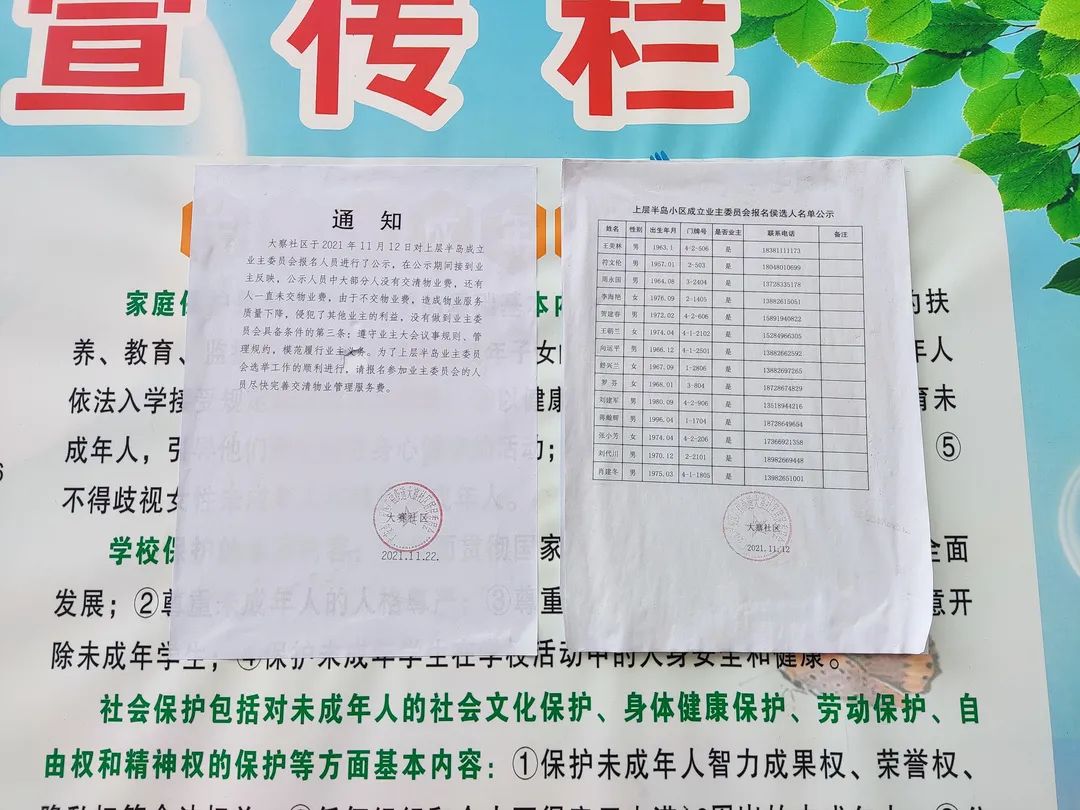 宣传栏
通 知
大寨社区于2021年11月12日对上层半岛成立
业主委员会报名人员进行了公示，在公示期间接到业
主反映，公示人员中大部分人没有交清物业费，还有
人一直未交物业费，由于不交物业费，造成物业服务
质量下降，侵犯了其他业主的利益，没有做到业主委
员会具备条件的第三条：遵守业主大会议事规则、管
理规约，模范履行业主义务。为了上层半岛业主委员
会选举工作的顺利进行，请报名参加业主委员会的人
员尽快完善交清物业管理服务费。
大寨社区
2021.11.22.
上层半岛小区成立业主委员会报名侯选人名单公示
姓名 性别 出生年月 门牌号 是否业主 联系电话 备注
王荣林 男 1963.1 4-2-506 是 18381111173
符文伦 男 1957.01 2-503 是 18048010699
周永国 男 1964.08 3-2404 是 13728335178
李海艳 女 1976.09 2-1405 是 13882615051
贺建春 男 1972.02 4-2-606 是 15891940822
王朝兰 女 1974.04 4-1-2102 是 15284966305
向运平 男 1966.12 4-1-2501 是 13882662592
舒兴兰 女 1967.09 1-2806 是 13882697265
罗 芬 女 1968.01 3-804 是 18728674829
刘建军 男 1980.09 4-2-906 是 13518944216
蒋 男 1996.04 1-1704 是 18728649654
张小芳 女 1974.04 4-2-206 是 17366921358
刘代川 男 1970.12 2-2101 是 18982669448
肖建冬 男 1975.03 4-1-1805 是 13982651001
大寨社区
2021.11.12
家庭保 本内 的扶
养、教育、 女 年人
依法入学接受规 以健康 育未
成年人，引导他们 身心 活动； ⑤
不得歧视女性未成 年人。
学校保护的 而贯彻国家 全面
发展；②尊重未成年人的人格尊严；③尊重 意开
除未成年学生；④保护未成年学生在学校活动中的人身安全和健康。
社会保护包括对未成年人的社会文化保护、身体健康保护、劳动保护、自
由权和精神权的保护等方面基本内容：①保护未成年人智力成果权、荣誉权、